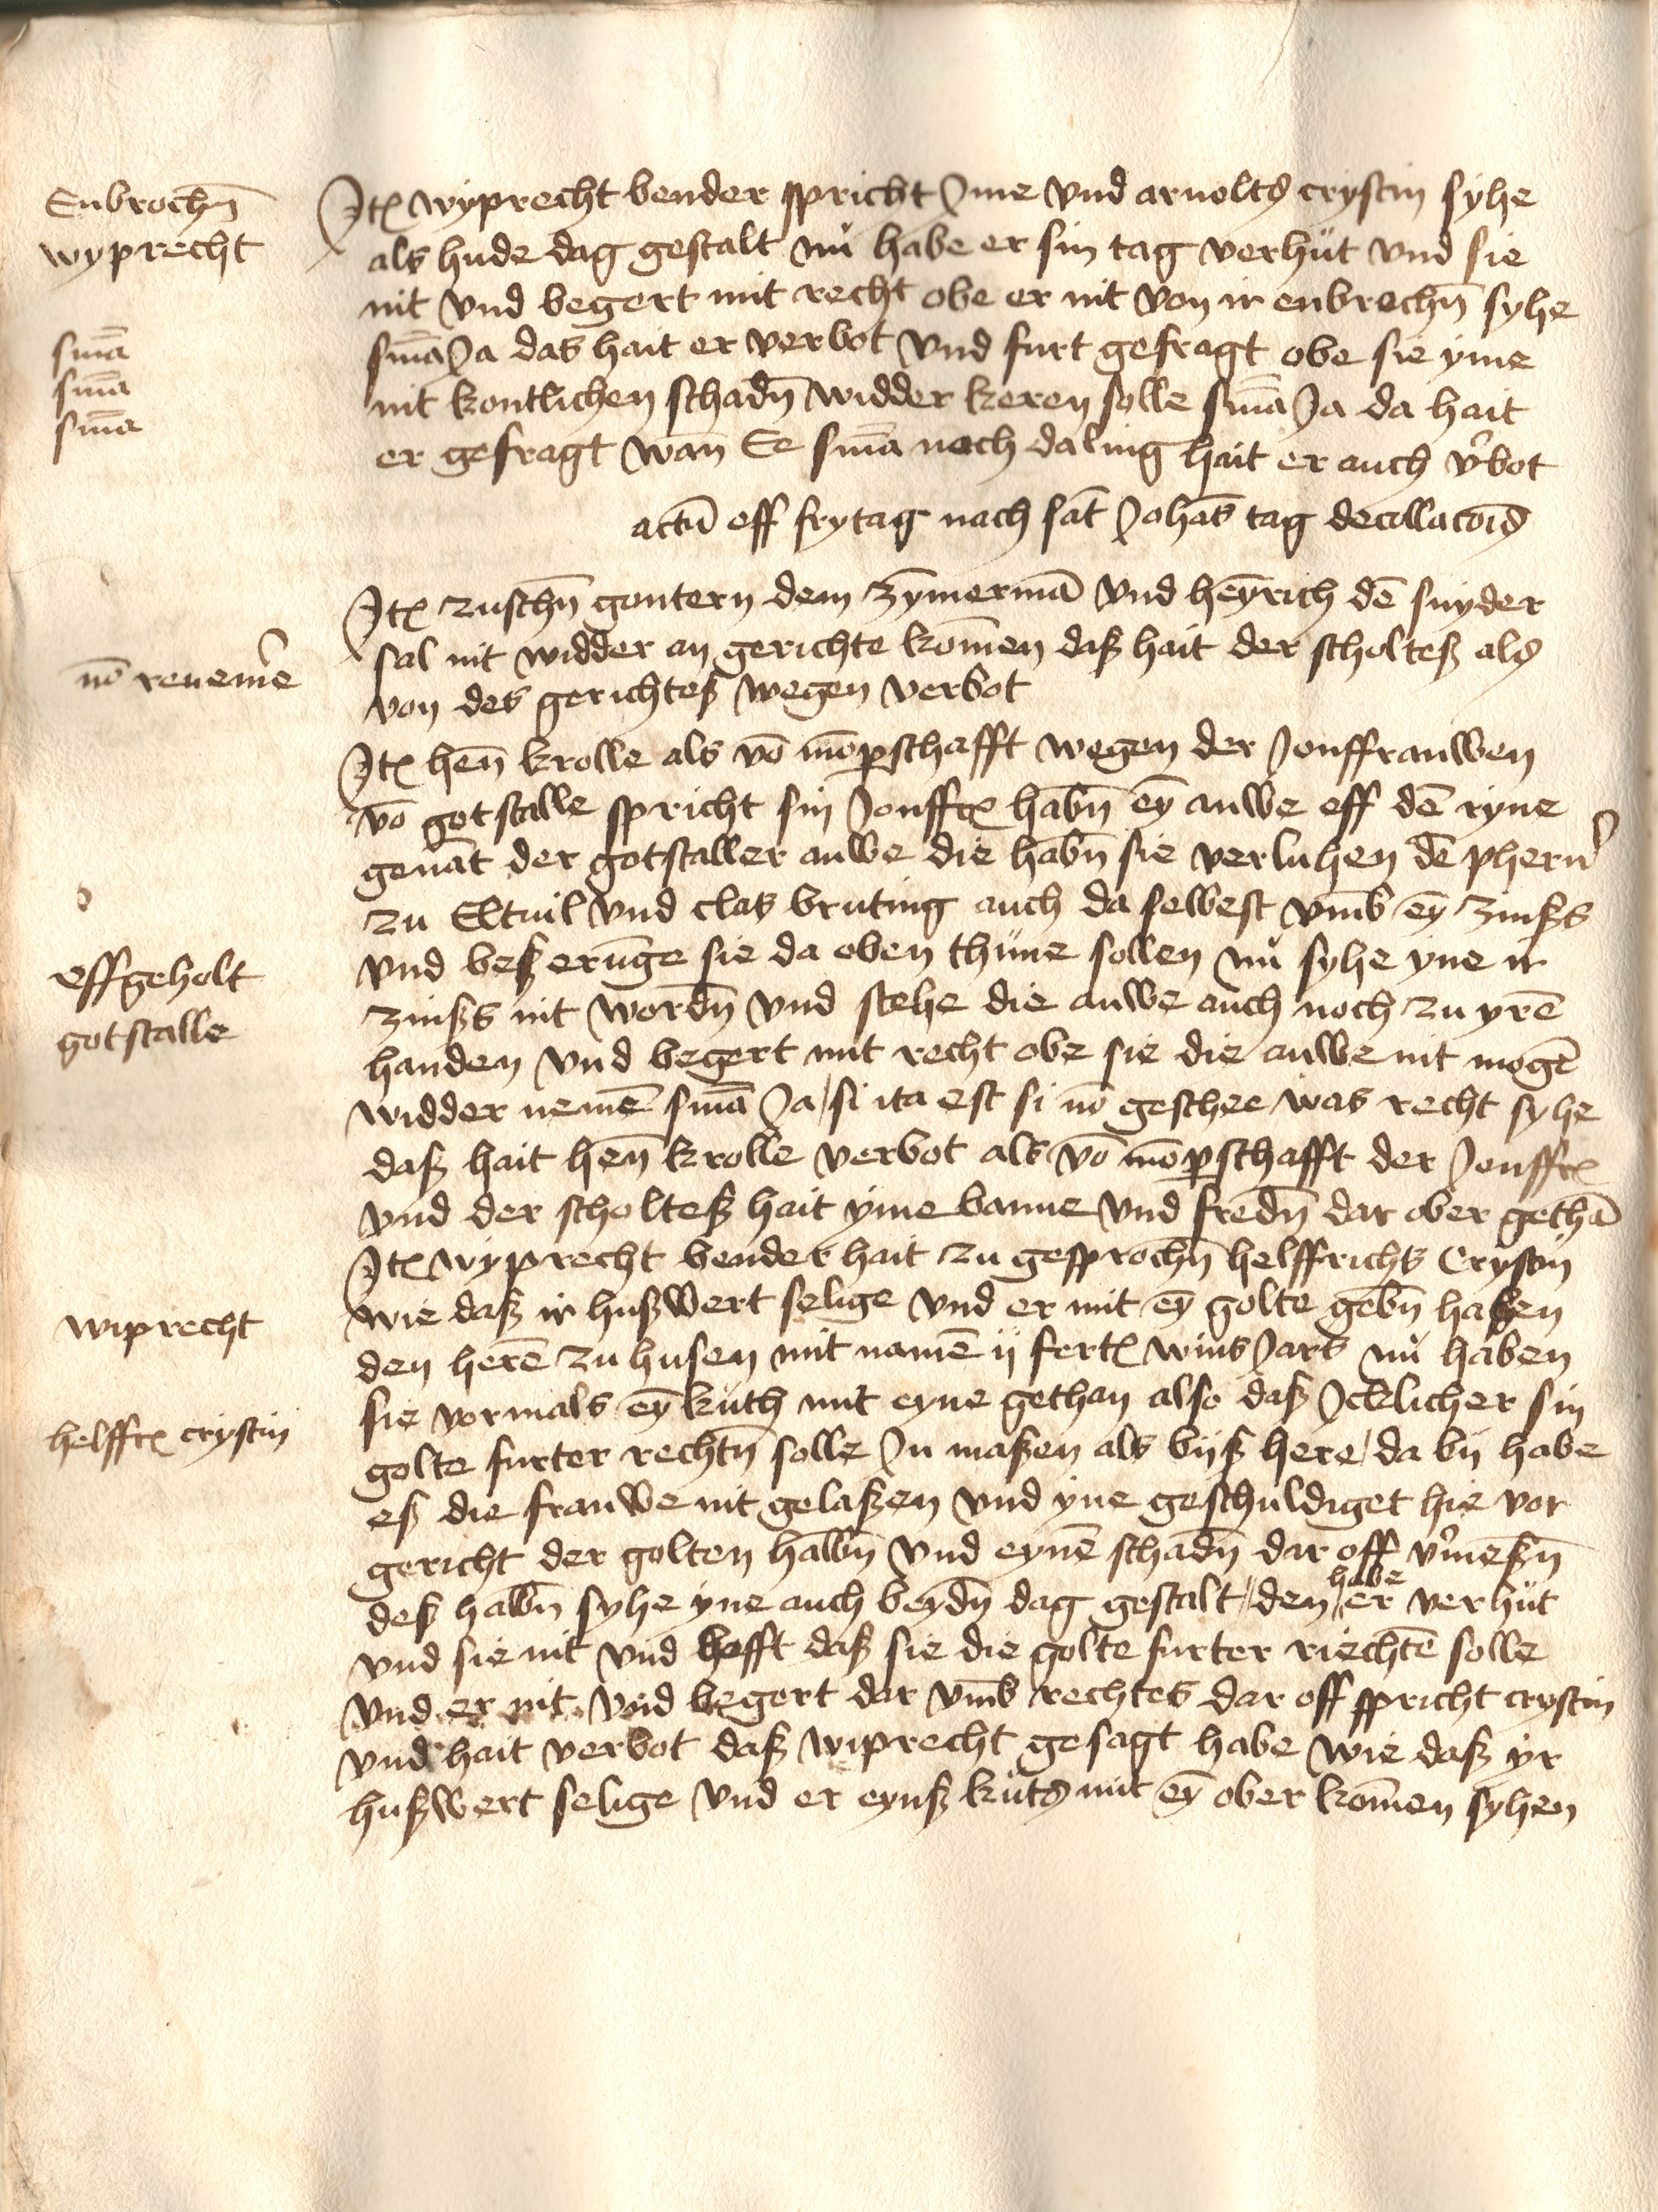 Enbrochn̄
wyprecht
Itꝫ wyprecht bender spricht Ime vnd arnoltꝭ crystin syhe
als hude dag gestalt nů habe er sin tag verhůt vnd sie
nit vnd begert mit recht obe er nit von ir enbrochn̄ syhe
snīa
snīa Ja das hait er verbot vnd furt gefragt obe sie yme
snīa
nit kontlichen schadn̄ widder keren solle snīa Ja da hait
snīa
er gefragt wan̄ Ee snīa noch daling hait er auch v'bot
actū eff frytag nach sāt Johās tag decollacōīs
Itꝫ zuschn̄ gontern dem zȳmermā vnd hēyrich dē snyder
sal nit widder an gerichte kōmen daß hait der scholteß alꝭ
nō reuem'e
von des gerichteß wegen verbot
Itꝫ hen̄ krolle als vō mōpschafft wegen der Jonffrauwen
vō gotstalle spricht sin Jonffrꝫ habn̄ eȳ auwe eff dē ryne
genāt der gotstaller auwe die habn̄ sie verluhen dē phern'
zu Eltuil vnd clas bruting auch da selbest vm̄b eȳ zinßs
effgeholt
gotstalle
vnd beßerūge sie da oben thůne sollen nů syhe yne ir
zinßs nit wordn̄ vnd stehe die auwe auch noch zu yrē
handen vnd begert mit recht obe sie die auwe nit mogē
widder nemē snīa Ja / si ita est si nō geschee was recht syhe
daß hait hen̄ krolle verbot als vō mōpschafft der Jonffrꝫ
vnd der scholteß hait yme banne vnd fredn̄ dar ober gethā
Itꝫ wyprecht bender hait zu gesprochn̄ helffrichs Crystin
wiprecht
wie daß ir hußwert selige vnd er mit eȳ golte gebn̄ haben
den herē zu husen mit namē ij fertꝫ wins Jars nů haben
helffrꝫ crystin
sie vormals eȳ kuth mit eyne gethan also daß Icklicher sin
golte furter rechtn̄ solle In maßen als bijß here / da by habe
eß die frauwe nit gelaßen vnd yne geschuldiget hie vor
gericht der golten halbn̄ vnd eynē schadn̄ dar off v'meßn̄
deß halbn̄ syhe yne auch beydn̄ dag gestalt / den habe er verhůt
vnd sie nit vnd hofft daß sie die golte furter riechtē solle
vnd er nit vnd begert dar vm̄b rechtes dar off spricht crystin
vnd hait verbot daß wiprecht gesagt habe wie daß yr
hußwert selige vnd er eynß kůtꝭ mit eȳ ober kōmen syhen